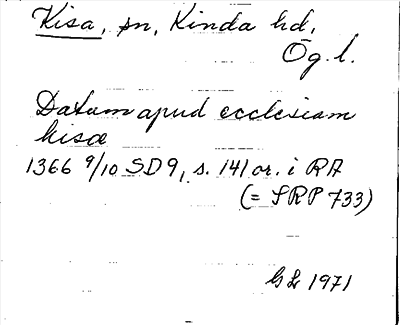 Kisa, sn, Kinda hd,
Ög. l.
Datum apud ecclesiam
kisa
1366 9/10 SD 9, s. 141 or. i RA
(= SRP 733)
GL 1971